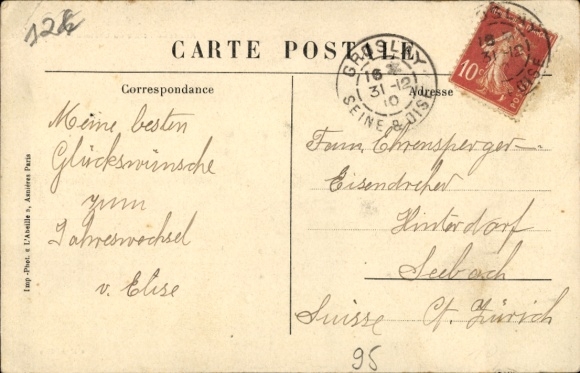 126
CARTE POSTALE
GROSLEY
16
31-12
10
SEINE & OISE
10c
Correspondance
Adresse
Meine besten
Glückswünsche
zum
Jahreswechsel
v. Elise
Fam. Ehrensperger-
Eisendreher
Hinterdorf
Seebach
Suisse Ct. Zürich
Imp.-Phot. « L'Abeille », Asnières Paris
95